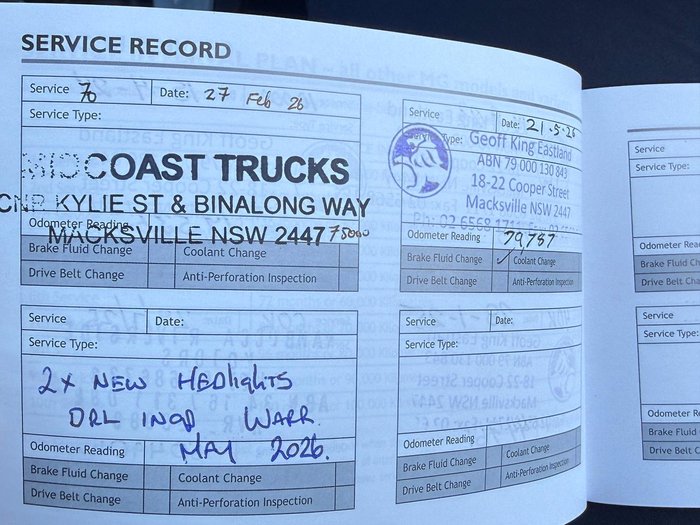 SERVICE RECORD
Service 70 Date: 27 Feb 26
Service Type:
MIDCOAST TRUCKS
CNR KYLIE ST & BINALONG WAY
Odometer Reading
MACKSVILLE NSW 2447 75000
Brake Fluid Change Coolant Change
Drive Belt Change Anti-Perforation Inspection
Service Date: 21.5.26
Service Type: Geoff King Eastland
ABN 79 000 130 843
18-22 Cooper Street
Macksville NSW 2447
Ph: 02 6568
Odometer Reading 79,787
Brake Fluid Change ✓ Coolant Change
Drive Belt Change Anti-Perforation Inspection
Service Date:
Service Type:
2x NEW HEDLIGHTS
DRL INOP WARR.
Odometer Reading MAY 2026.
Brake Fluid Change Coolant Change
Drive Belt Change Anti-Perforation Inspection
Service Date:
Service Type:
Odometer Reading
Brake Fluid Change Coolant Change
Drive Belt Change Anti-Perforation Inspection
Service
Service Type:
Odometer Rea
Brake Fluid Ch
Drive Belt Cha
Service
Service Type:
Odometer R
Brake Fluid
Drive Belt C